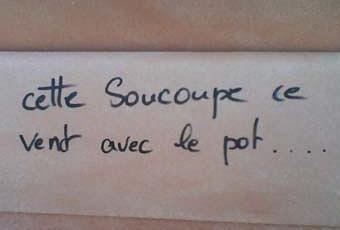 cette Soucoupe ce
vent avec le pot....